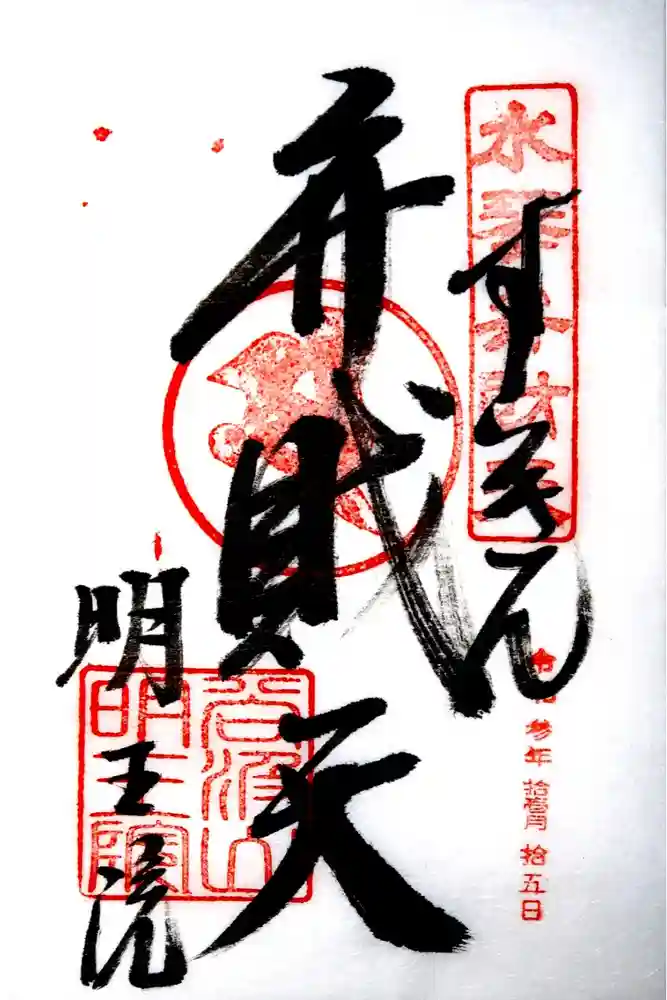 水琴弁財天
令和参年拾壹月拾五日
弁財天
明王院
明王院